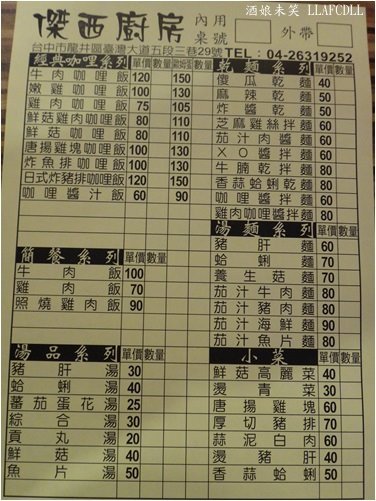 酒娘未笑 LLAFCDLL
傑西廚房 內用 桌號 外帶
台中市龍井區臺灣大道五段三巷29號 TEL：04-26319252
經典咖哩系列 單價 數量 歐姆蛋 數量
牛肉咖哩飯 120 150
嫩雞咖哩飯 100 130
雞肉咖哩飯 75 105
鮮菇雞肉咖哩飯 80 110
鮮菇咖哩飯 80 110
唐揚雞塊咖哩飯 100 130
炸魚排咖哩飯 100 130
日式炸豬排咖哩飯 120 150
咖哩醬汁飯 60 90
簡餐系列 單價 數量
牛肉飯 100
雞肉飯 70
照燒雞肉飯 90
湯品系列 單價 數量
豬肝湯 30
蛤蜊湯 40
蕃茄蛋花湯 25
綜合湯 30
貢丸湯 20
鮮菇湯 40
魚片湯 50
乾麵系列 單價 數量
傻瓜乾麵 40
麻辣乾麵 50
炸醬乾麵 50
芝麻雞絲拌麵 60
茄汁肉醬麵 60
XO醬拌麵 60
牛腩乾拌麵 80
香蒜蛤蜊乾麵 80
咖哩醬拌麵 60
雞肉咖哩醬拌麵 80
湯麵系列 單價 數量
豬肝麵 60
蛤蜊麵 70
養生菇麵 70
茄汁牛肉麵 80
茄汁豬肉麵 80
茄汁海鮮麵 90
茄汁魚片麵 80
小菜 單價 數量
鮮菇高麗菜 40
燙青菜 30
唐揚雞塊 60
厚切豬排 70
蒜泥白肉 60
燙豬肝 40
香蒜蛤蜊 50